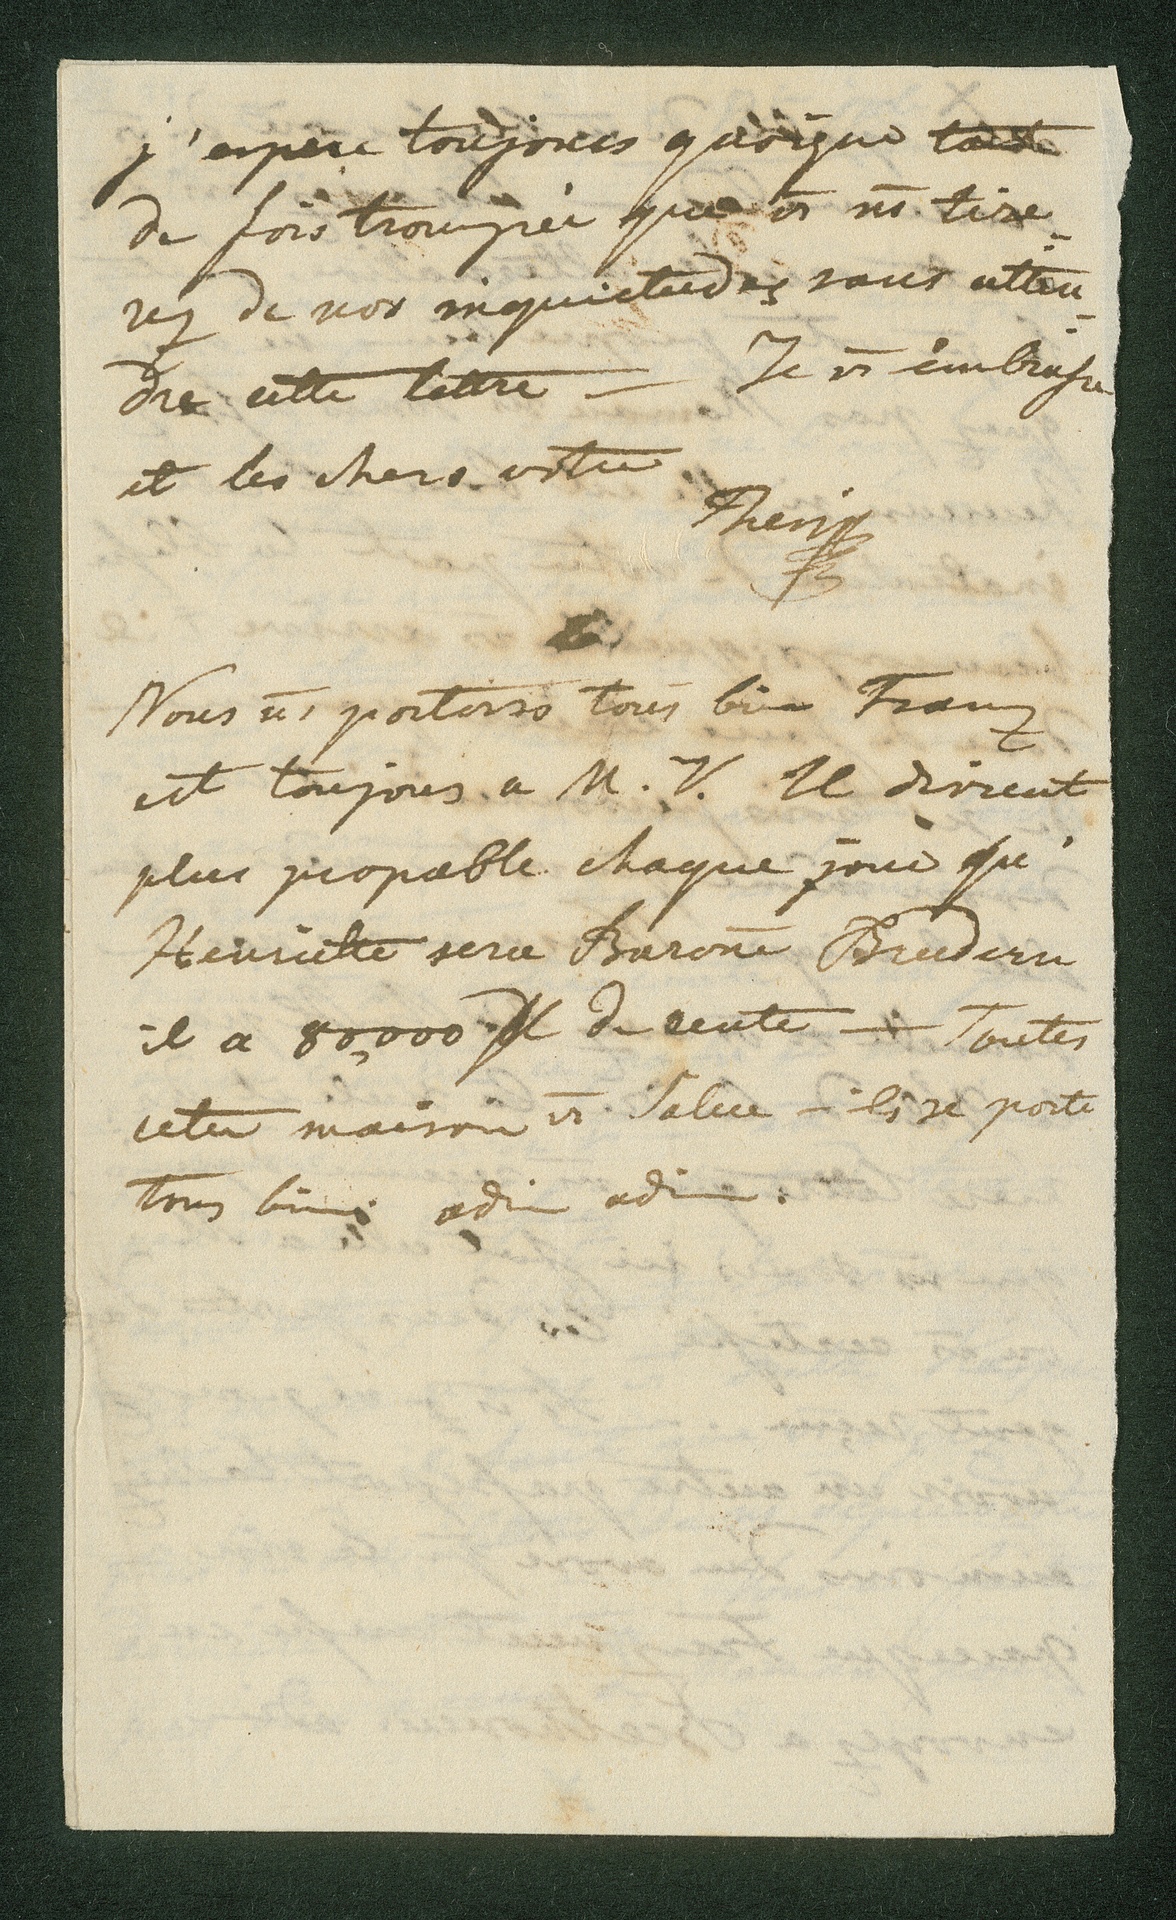 j'espere toujours quoique tante
de fois trompée que vs ns tire-
rez de nos inquietudes sans atten-
dre cette lettre — Je vs embrasse
et les chers votre
Therese
Nous ns portons tous bien Franz
est toujours a M. V. Il devient
plus propable chaque jour qu'
Henriette sera Barone Brudern
il a 80,000 fl de rente — Toutes
cette maison vs Salue – ils se porte
tous bien adieu adieu.